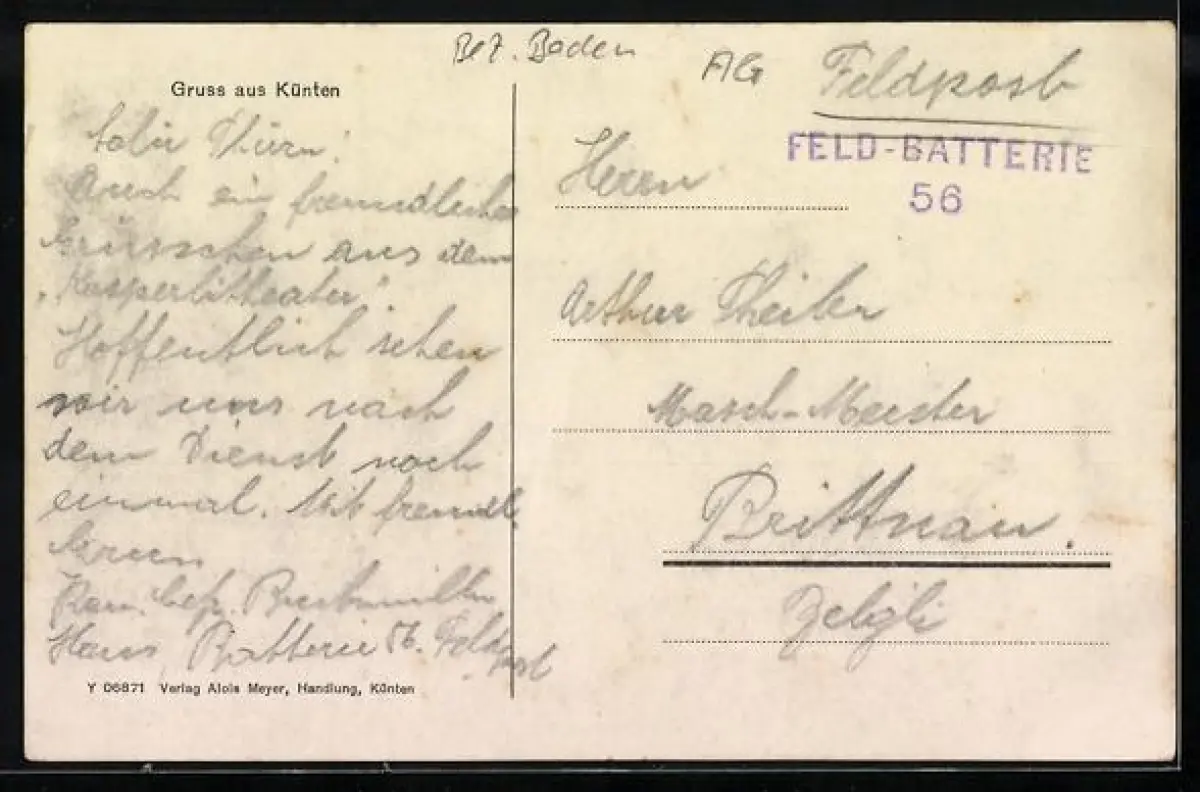 Bez. Baden
AG
Feldpost
FELD-BATTERIE
56
Gruss aus Künten
Auch ein freundliches
Grüsschen aus dem
"Kasperlitheater".
Hoffentlich sehen
wir uns nach
dem Dienst noch
einmal. Mit freundl.
Hans Batterie 56. Feldpost
Y 06871 Verlag Alois Meyer, Handlung, Künten
Herrn
Arthur
Masch-Meister
Brittnau.
Zelgli